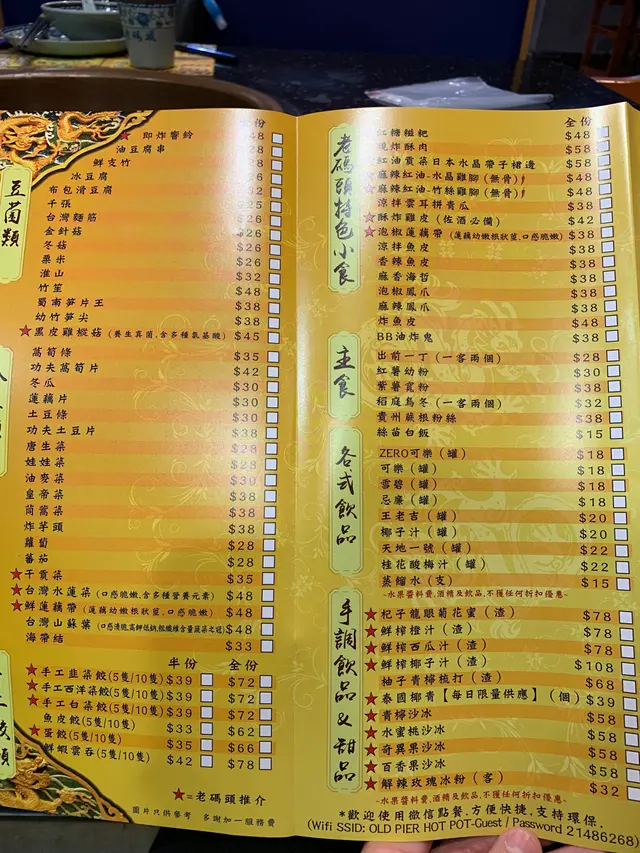 全份
★ 即炸響鈴 $48
油豆腐串 $28
鮮支竹 $28
冰豆腐
布包滑豆腐
千張 $25
台灣麵筋 $26
金針菇 $26
冬菇 $26
粟米 $26
淮山 $32
竹笙 $48
蜀南笋片王 $38
幼竹笋尖 $38
★黑皮雞樅菇 (養生真菌,含多種氨基酸) $45
豆菌類
萵筍條 $35
功夫萵荀片 $42
冬瓜 $30
蓮藕片 $30
土豆條 $30
功夫土豆片 $38
唐生菜 $28
娃娃菜 $28
油麥菜 $30
皇帝菜 $38
茼蒿菜 $38
炸芋頭 $38
蘿蔔 $28
蕃茄 $28
★干貢菜 $35
★台灣水蓮菜 (口感脆嫩,含多種營養元素) $48
★鮮蓮藕帶 (蓮藕幼嫩根狀莖,口感脆嫩) $48
台灣山蘇葉 (口感清脆,高鉀低鈉,粗纖維含量蔬菜之冠) $48
海帶結 $33
半份 全份
★手工韭菜餃(5隻/10隻) $39 $72
★手工西洋菜餃(5隻/10隻) $39 $72
★手工白菜餃(5隻/10隻) $39 $72
魚皮餃(5隻/10隻) $33 $62
★蛋餃(5隻/10隻) $35 $66
鮮蝦雲吞(5隻/10隻) $42 $78
★=老碼頭推介
圖片只供參考 多謝加一服務費
老碼頭特色小食
全份
紅糖糍粑 $48
現炸酥肉 $58
紅油貢菜日本水晶帶子裙邊 $58
★麻辣紅油-水晶雞腳 (無骨) $48
★麻辣紅油-竹絲雞腳 (無骨) $48
涼拌雲耳拼青瓜 $38
★酥炸雞皮 (佐酒必備) $42
★泡椒蓮藕帶 (蓮藕幼嫩根狀莖,口感脆嫩) $38
涼拌魚皮 $38
香辣魚皮 $38
麻香海哲 $38
泡椒鳳爪 $38
麻辣鳳爪 $38
炸魚皮 $48
BB油炸鬼 $38
主食
出前一丁 (一客兩個) $28
紅薯幼粉 $30
紫薯寬粉 $38
稻庭烏冬 (一客兩個) $32
貴州蕨根粉絲 $38
絲苗白飯 $15
各式飲品
ZERO可樂 (罐) $18
可樂 (罐) $18
雪碧 (罐) $18
忌廉 (罐) $18
王老吉 (罐) $20
椰子汁 (罐) $20
天地一號 (罐) $22
桂花酸梅汁 (罐) $22
蒸餾水 (支) $15
~水果醬料費,酒精及飲品,不獲任何折扣優惠~
手調飲品&甜品
★杞子龍眼菊花蜜 (渣) $78
★鮮榨橙汁 (渣) $78
★鮮榨西瓜汁 (渣) $78
★鮮榨椰子汁 (渣) $108
柚子青檸梳打 (渣) $68
★泰國椰青【每日限量供應】 (個) $39
★青檸沙冰 $58
★水蜜桃沙冰 $58
★奇異果沙冰 $58
★百香果沙冰 $58
★解辣玫瑰冰粉 (客) $32
~水果醬料費,酒精及飲品,不獲任何折扣優惠~
*歡迎使用微信點餐,方便快捷,支持環保.
(Wifi SSID: OLD PIER HOT POT-Guest / Password 21486268)